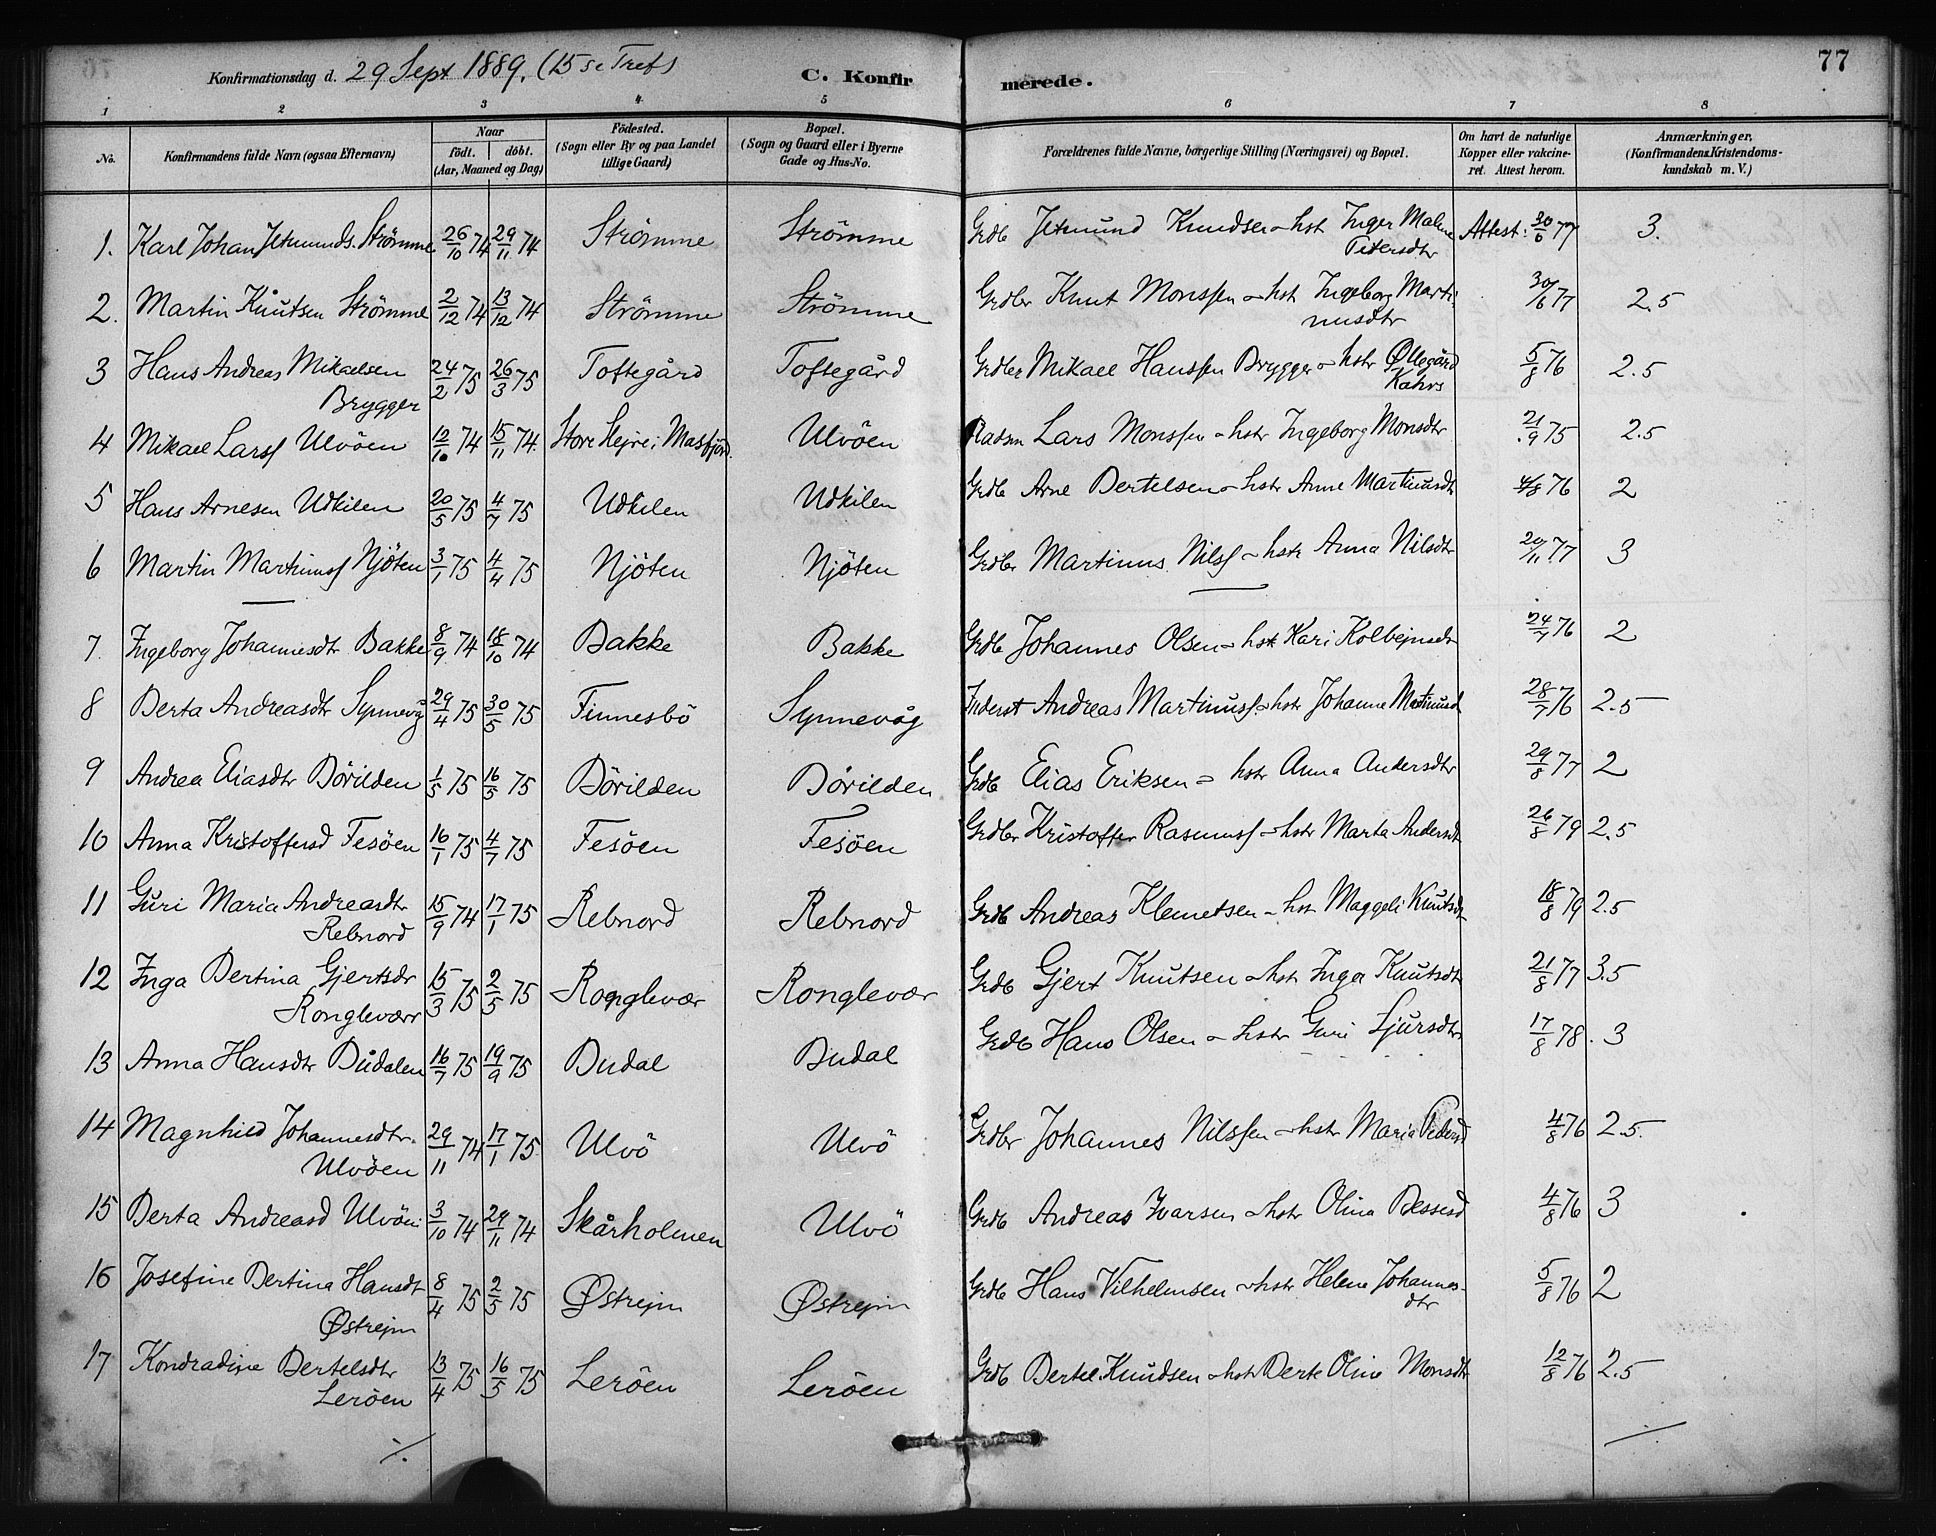 77
Konfirmationsdag d. 29 Sept 1889. (15 se Tref)
C. Konfirmerede.
1 2 3 4 5 6 7 8
No. Konfirmandens fulde Navn (ogsaa Efternavn) Naar født. døbt. (Aar, Maaned og Dag) Födested. (Sogn eller By og paa Landet tillige Gaard) Bopæl. (Sogn og Gaard eller i Byerne Gade og Hus-No. Forældrenes fulde Navne, borgerlige Stilling (Næringsvei) og Bopæl. Om havt de naturlige Kopper eller vakcineret. Attest herom. Anmærkninger, (Konfirmandens Kristendomskundskab m. V.)
1. Karl Johan Jetmunds. Strömme 26/10 74 29/11 74 Strömme Strömme Grdb Jetmund Knudsen - hst Inger Malene Petersdtr Attest: 30/6 77 3.
2. Martin Knutsen Strömme 2/12 74 13/12 74 Strömme Strömme Grdbr Knut Monssen - hst Ingeborg Martinusdtr 30/6 77 2.5
3 Hans Andreas Mikaelsen Brygger 24/2 75 26/3 75 Toftegård Toftegård Grdbr Mikael Hanssen Brygger - hstr Øllegård Kahrs 5/8 76 2.5
4 Mikael Larss Ulvöen 12/10 74 15/11 74. Store Hejre i Masfjord. Ulvöen Lars Monssen - hstr Ingeborg Monsdtr 21/9 75 2.5
5 Hans Arnesen Udkilen 20/5 75 4/7 75 Udkilen Udkilen Grdb Arne Bertelsen - hstr Anne Martinusdt 4/8 76 2
6 Martin Martinuss Njöten 3/1 75 4/4 75 Njöten Njöten Grdbr Martinus Nilss - hstr Anna Nilsdtr 20/11 77 3
7. Ingeborg Johannesdtr Bakke 8/9 74 18/10 74 Bakke Bakke Grdb Johannes Olsen - hstr Kari Kolbejnsdr 24/7 76 2
8 Berta Andreasdtr Synnevåg 29/4 75 30/5 75 Finnesbö Synnevåg Inderst Andreas Martinuss. - hstr Johanne Martinusd 28/7 76 2.5
9 Andrea Eliasdtr Börilden 1/5 75 16/5 75 Börilden Börilden Grdb Elias Eriksen - hstr Anna Andersdtr 29/8 77 2
10 Anna Kristoffersd Fesöen 16/1 75 4/7 75 Fesöen Fesöen Grdbr Kristoffer Rasmuss - hstr Marta Andersdt 26/8 79 2.5
11 Guri Maria Andreasdtr Rebnord 15/9 74 17/1 75 Rebnord Rebnord Grdb Andreas Klemetsen - hst Maggeli Knutsdt 18/8 79 2.5
12 Inga Bertina Gjertsdr Ronglevær 15/3 75 2/5 75 Ronglevær Ronglevær Grdb Gjert Knutsen - hst Inga Knutsdt 21/8 77 3.5
13 Anna Hansdtr Budalen 16/7 75 19/9 75 Budal Budal Grdb Hans Olsen - hstr Guri Sjursdtr 17/8 78. 3
14 Magnhild Johannesdtr. Ulvöen 29/11 74 17/1 75. Ulvö Ulvö Grdbr Johannes Nilssen - hstr Maria Pedersd 4/8 76 2.5.
15 Berta Andreasd Ulvöen 3/10 74 29/11 74 Skårholmen Ulvö Grdb Andreas Ivarsen - hstr Olina Bessesd 4/8 76 3
16 Josefine Bertina Hansdt Østrejm 8/4 75 2/5 75 Østrejm Østrejm Grdb Hans Vilhelmsen - hstr Helene Johannesdtr 5/8 76 2
17 Kondradine Bertelsdtr Leröen 13/4 75 16/5 75 Leröen Leröen Grdb Bertel Knudsen - hst Berte Oline Monsdt 12/8 76 2.5